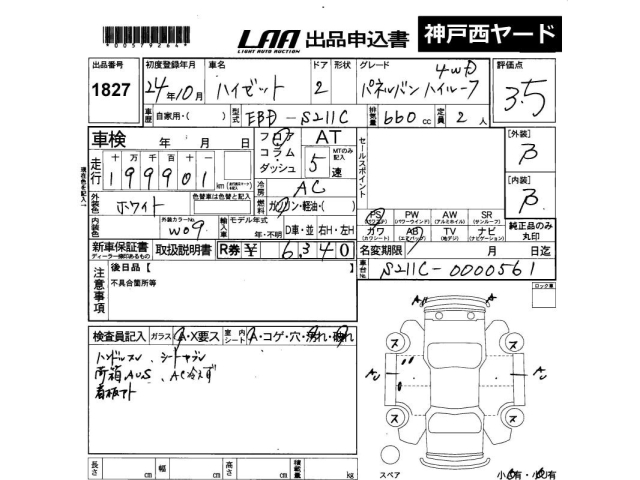 *00579264*
LAA 出品申込書 神戸西ヤード
LIGHT AUTO AUCTION
出品番号 初度登録年月 車名 ドア 形状 グレード 評価点
1827 24年10月 ハイゼット 2 パネルバン ハイルーフ 4WD 3.5
車歴 自家用・( ) 型式 EBD-S211C 排気量 660 cc 定員 2 人
車検 年 月 日
フロア AT
コラム・ 5 MTのみ記入
ダッシュ 速
セールスポイント
[外装] B
走行 十万千百十一
199901 km
[内装] B
冷房 AC
外装色 ホワイト 色替車は色替と記入
燃料 ガソリン・軽油・( )
内装色 外装カラーNo. W09
輸入車 モデル年式 年・不明 D車・並 右H・左H
PS PW AW SR
(パワステ) (パワーウインド) (アルミホイル) (サンルーフ)
カワ AB TV ナビ
(カワシート) (エアバック) (地デジ) (ナビゲーション)
純正品のみ丸印
新車保証書 取扱説明書 R券 ¥ 6340 名変期限 月 日迄
ディーラー捺印あるもの
車台No. S211C-0000561
注意事項 後日品【
不具合箇所等
ロック車
検査員記入 ガラス A・X要ス 室内シート A・コゲ・穴・汚れ・破れ
ハンドルスレ、シートヤブレ
荷箱AUS、AC冷えず
看板アト
A A
ス ス
A A
ス ス
長さ cm 幅 cm 高さ cm 積載量 kg
スペア